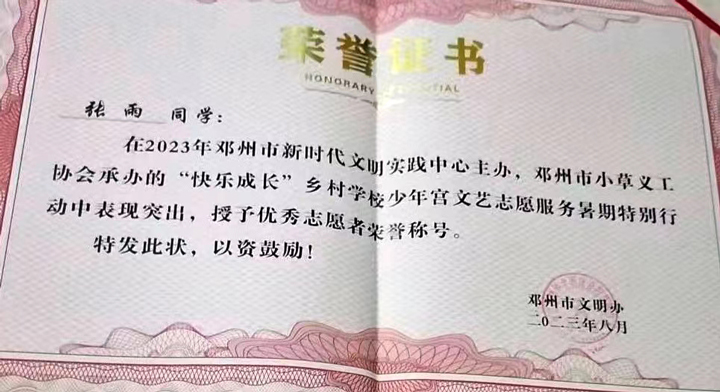 荣誉证书
HONORARY CREDENTIAL
张雨 同学：
在2023年邓州市新时代文明实践中心主办，邓州市小草义工
协会承办的“快乐成长”乡村学校少年宫文艺志愿服务暑期特别行
动中表现突出，授予优秀志愿者荣誉称号。
特发此状，以资鼓励！
邓州市文明办
二〇二三年八月